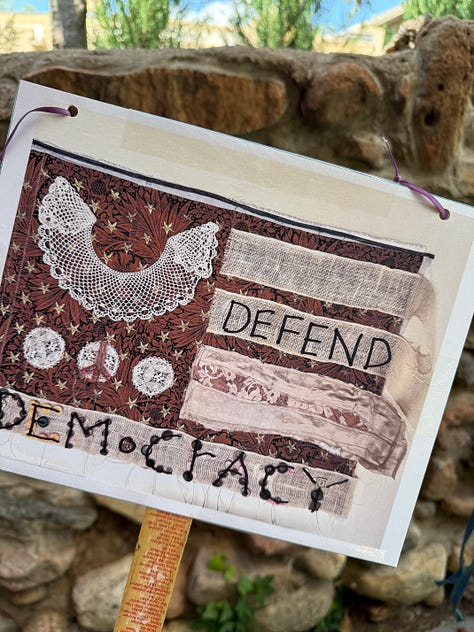 DEFEND
DEMOCRACY